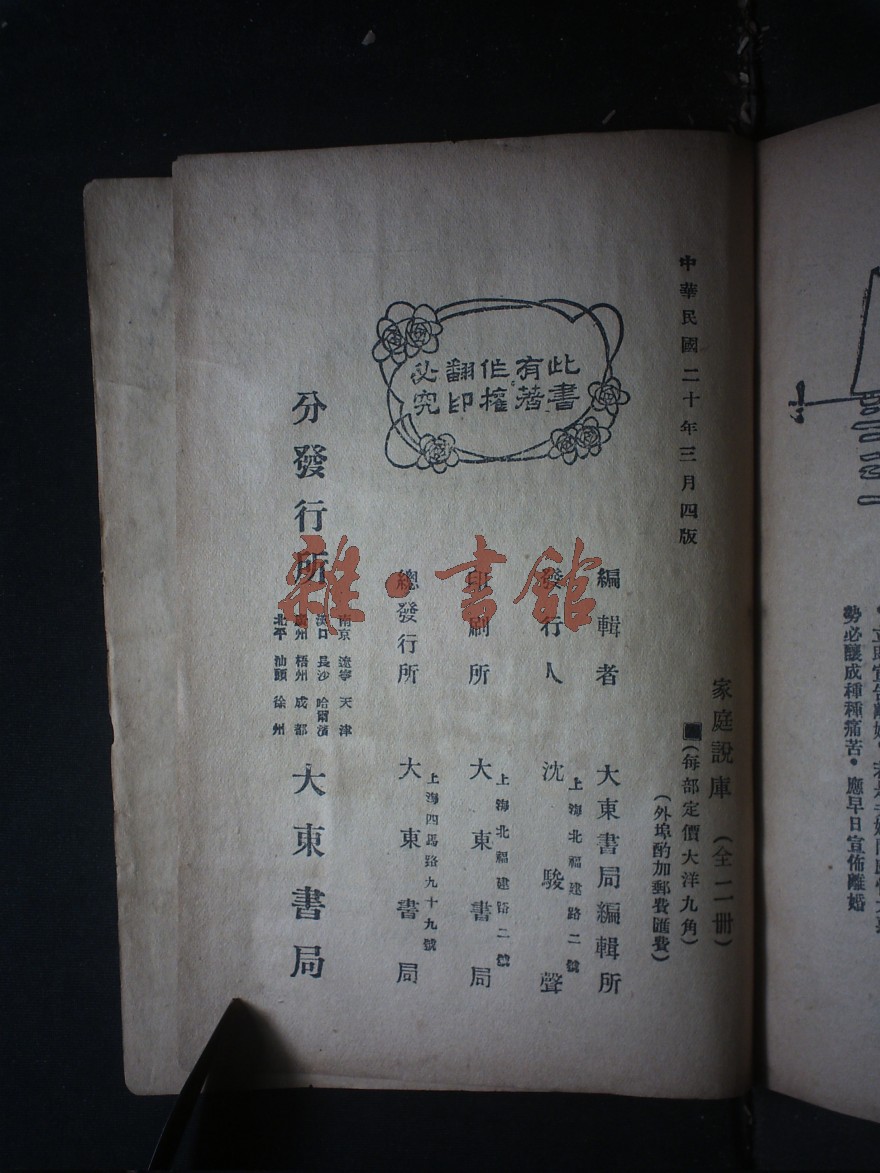 勢必釀成種種痛苦。應早日宣佈離婚
中華民國二十年三月四版
家庭說庫 (全二冊)
(每部定價大洋九角)
(外埠酌加郵費匯費)
此書
有著
作權
翻印
必究
編輯者 大東書局編輯所
發行人 沈駿聲
上海北福建路二號
印刷所 大東書局
上海北福建路二號
總發行所 大東書局
上海四馬路九十九號
分發行所 大東書局
南京 遼寧 天津
漢口 長沙 哈爾濱
廣州 梧州 成都
北平 汕頭 徐州
雜·書館